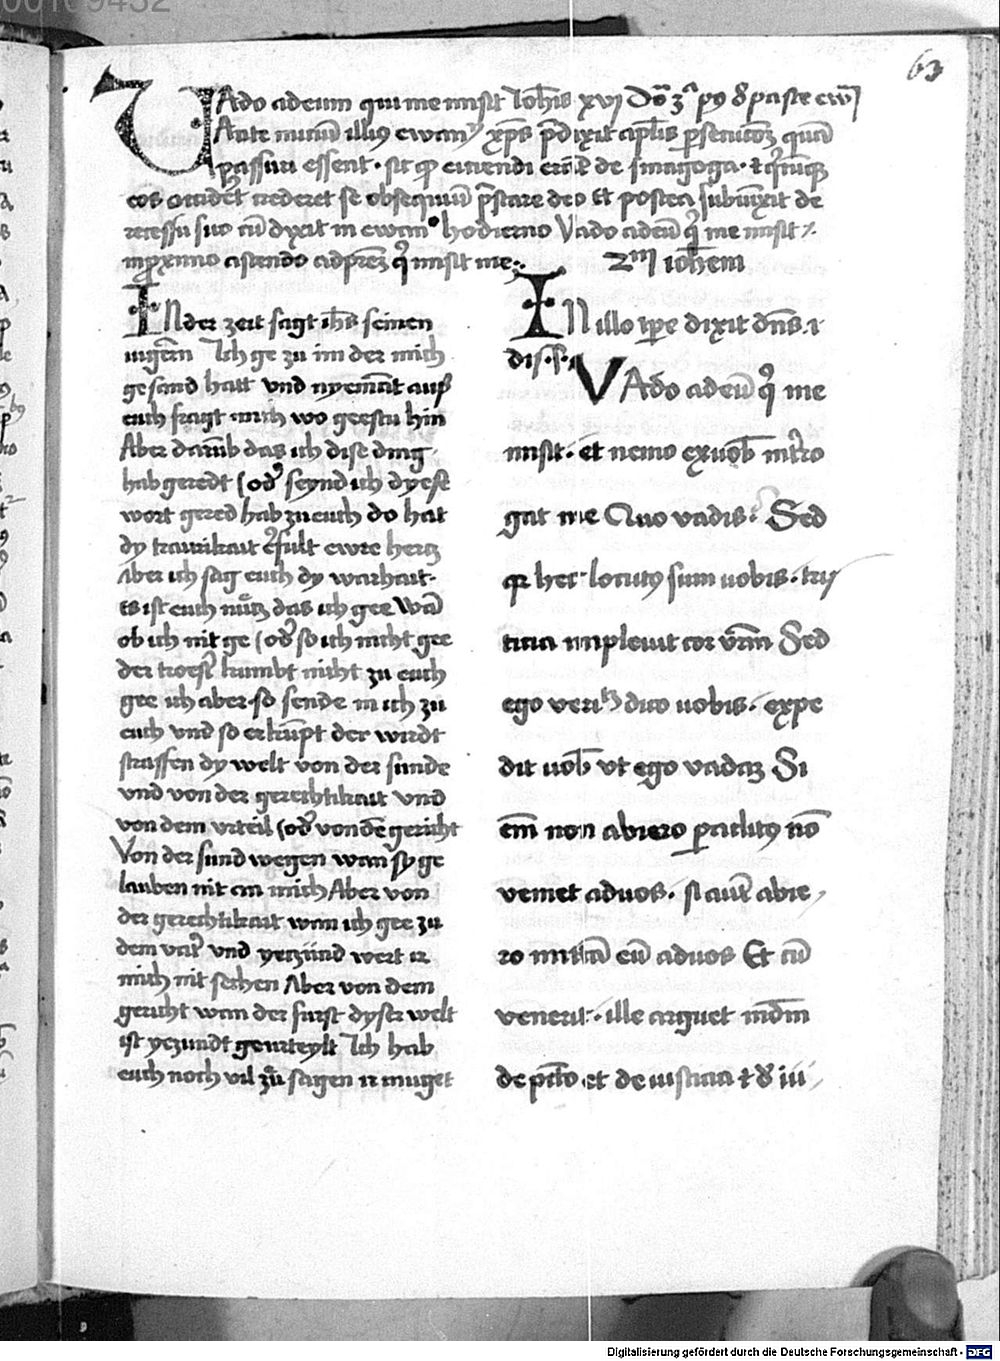 63
VAdo adeum qui me misit Ioh̄is xvj Do᷑ 3ᵃ pꝰ
Ante iniciū illiꝰ ewanᵍ xp̄s p̄dixit ap̄lis ꝑsecucōꝫ quā
passuri essent · sic ꝙ eiciendi de sinagoga · et
eos occidēt crederet se obsequiū p̄stare deo Et postea subiūxit de
recessu suo cū dixit in ewanᵒ hodierno Vado adeū qͥ me misit ⁊
in ꝓximo astendo ad pr̄eꝫ qͥ misit me
2ᵐ ioh̄em
IN der zeit sagt ih̄s seinen
iūgern Ich ge zu im der mich
gesand hatt vnd nyemāt auß
euch fragt mich wo geestu hin
Aber darūb das ich dise ding
hab geredt (od᷑ seynd ich dyese
wort gered hab zu euch do hat
dy traurikait e᷑fult ewre hertz
Aber ich sag euch dy warhait ·
es ist euch nütz das ich gee Wā
ob ich nit ge (od᷑ so ich nicht gee
der troest᷑ kumbt nicht zu euch
gee ich aber · so sende in ich zu
euch vnd so er kūpt der wirdt
straffen dy welt von der sunde
vnd von der gerechtikait vnd
von dem vrteil (od᷑ von dē gericht
Von der sund wegen wan sy ge
lauben nit an mich Aber von
der gerechtikait wan ich gee zu
dem vat᷑ vnd yetzund wert ir
mich nit sechen Aber von dem
gericht wan der furst dyser welt
ist yezundt geurteylt Ich hab
euch noch vil zu sagen ir muget
IN illo tp̄e dixit dn̄s i
dis · s ·
VAdo adeū qͥ me
misit · et nemo ex uob̄ int᷑ro
gat me Quo vadis · Sed
qꝛ hec locutꝰ sum uobis · tri
ticia impleuit cor vr̄m Sed
ego veritᵃ dico uobis · expe
dit uob̄ vt ego vadaꝫ Si
em̄ non abiero ꝑaclitꝰ nō
veniet aduos · si aut̄ abie
ro mittā eū aduos Et cū
venerit · ille arguet mūdm̄
de pctō · et de iusticia et d᷑ iu
Digitalisierung gefördert durch die Deutsche Forschungsgemeinschaft - DFG